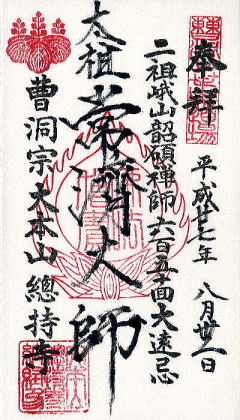 奉拝
平成廿七年 八月廿一日
二祖峨山韶碩禅師 六百五十回大遠忌
太祖 常濟大師
曹洞宗 大本山 總持寺